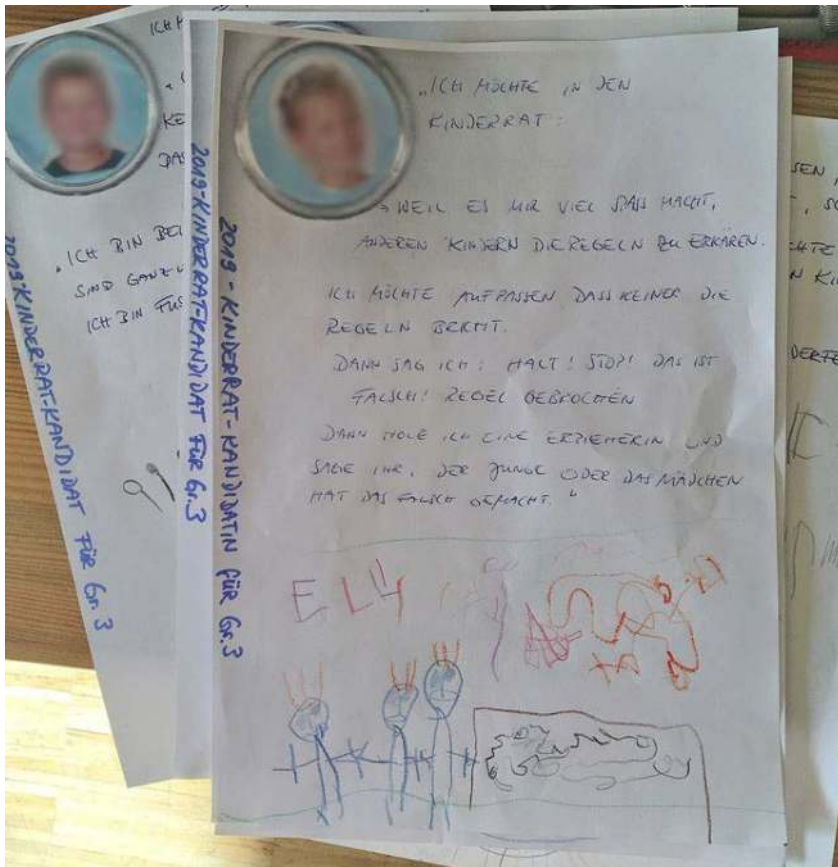 „ICH MÖCHTE IN DEN
KINDERRAT:
→ WEIL ES MIR VIEL SPASS MACHT,
ANDEREN KINDERN DIE REGELN ZU ERKÄREN.
ICH MÖCHTE AUFPASSEN DASS KEINER DIE
REGELN BRICHT.
DANN SAG ICH: HALT! STOP! DAS IST
FALSCH! REGEL GEBROCHEN
DANN HOLE ICH EINE ERZIEHERIN UND
SAGE IHR, DER JUNGE ODER DAS MÄDCHEN
HAT DAS FALSCH GEMACHT."
ELLY
2019 - KINDERRAT-KANDIDATIN FÜR Gr.3
2019-KINDERRAT-KANDIDAT FÜR Gr.3
2019-KINDERRAT-KANDIDAT FÜR Gr.3
ICH
KE
DAS
„ICH BIN BEI
SIND GANZ
ICH BIN FUS
SEN